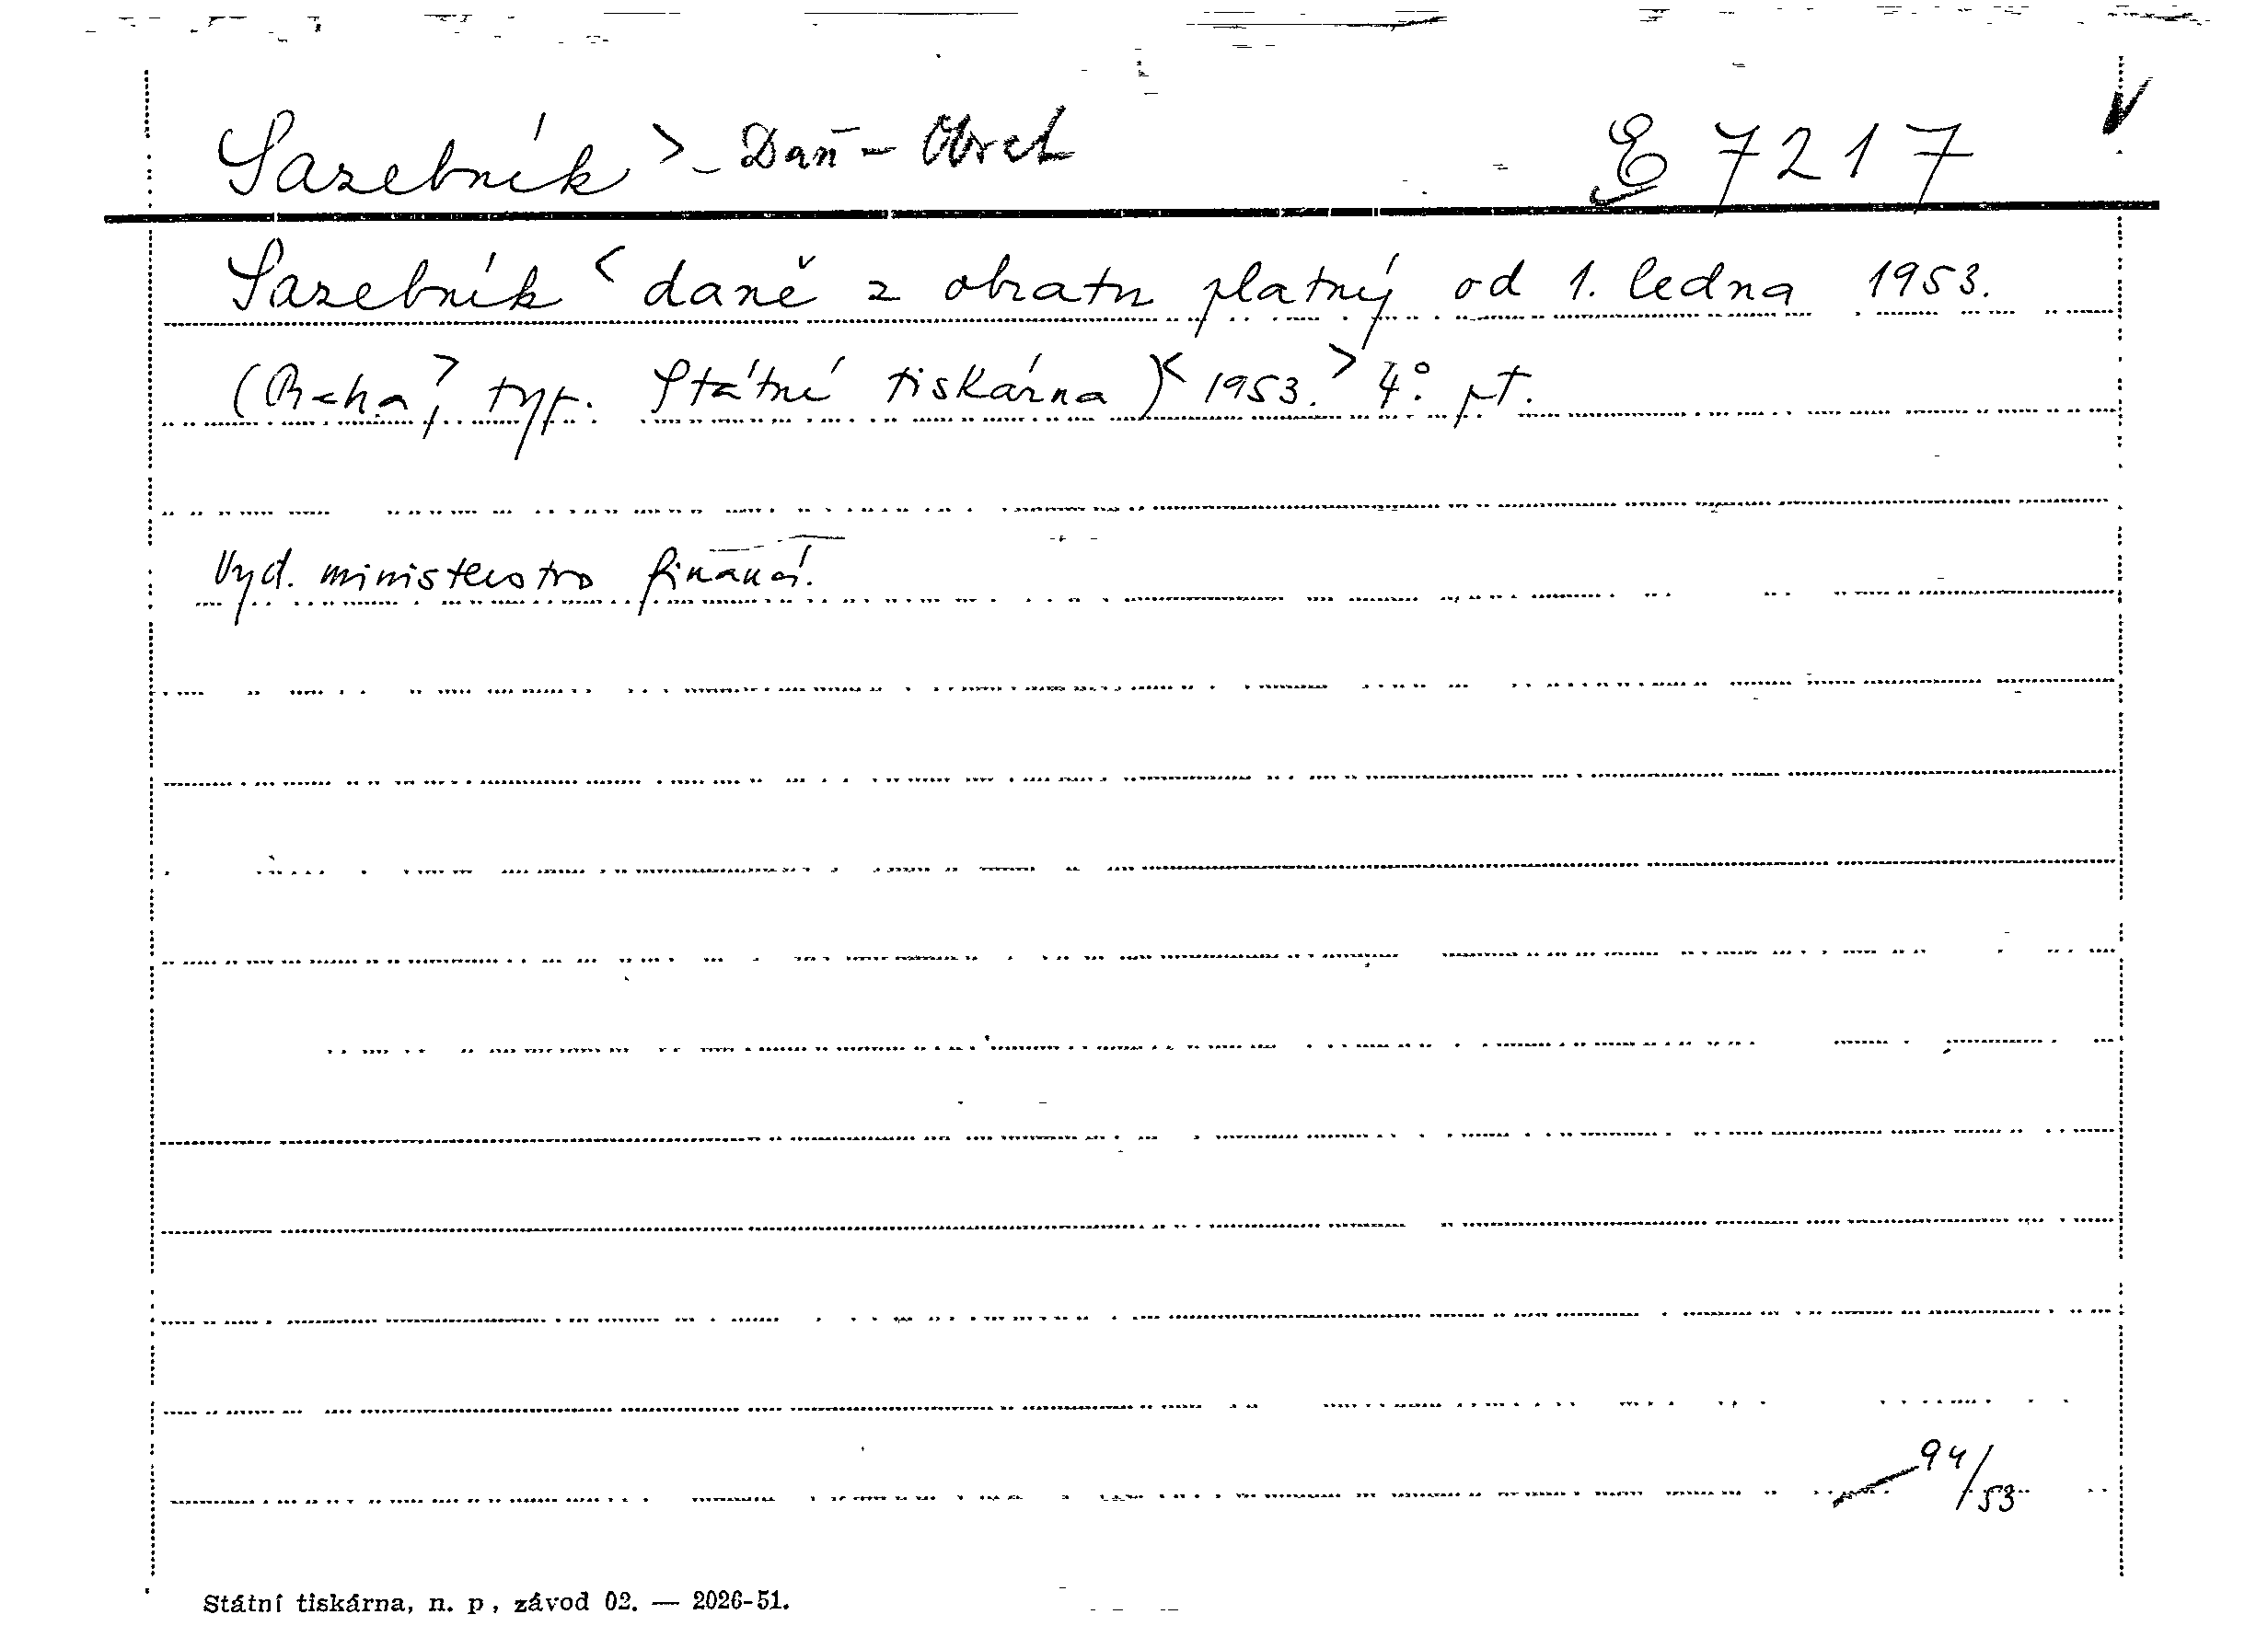 Sazebník > - Daň - Obrat E 7217
Sazebník < daně z obratu platný od 1. ledna 1953.
(Praha, > typ. Státní tiskárna) < 1953. > 4°. pt.
Vyd. ministerstvo financí.
94/53
Státní tiskárna, n. p., závod 02. — 2026-51.